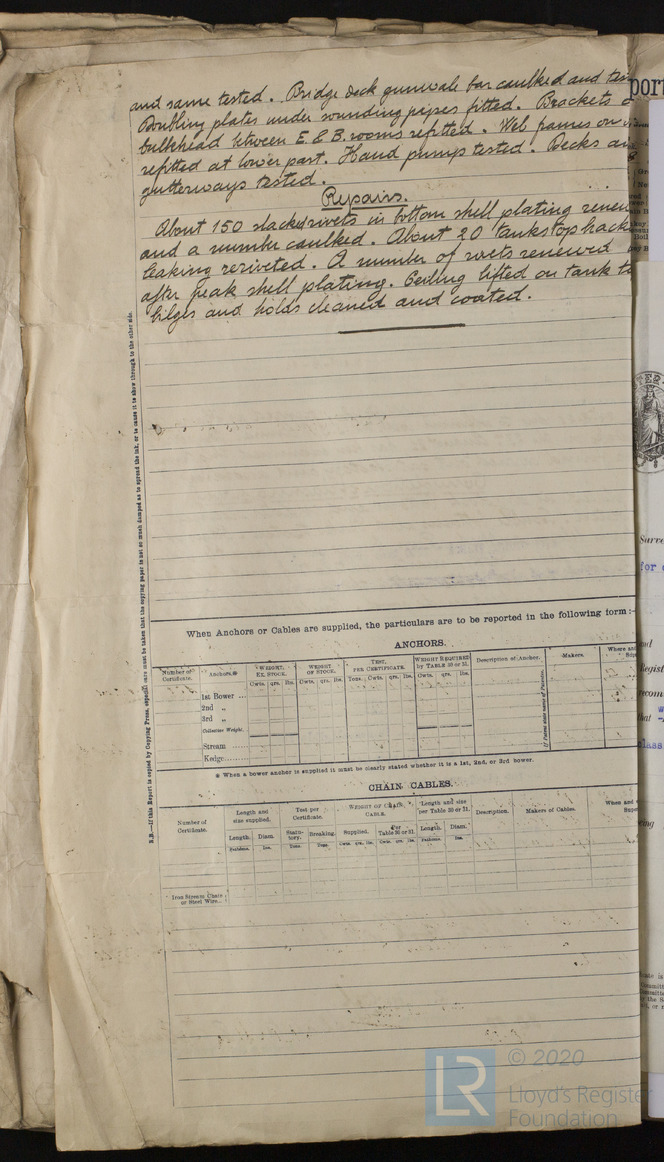 and same tested. Bridge deck gunwale bar caulked and
Doubling plates under sounding pipes fitted. Brackets
bulkhead between E. & B. rooms refitted. Web frames on
refitted at lower part. Hand pumps tested. Decks
gutterways tested.
Repairs.
About 150 slacked rivets in bottom shell plating
and a number caulked. About 20 tanks top
leaking reriveted. A number of rivets renewed
after peak shell plating. Ceiling lifted on tank
bilges and holds cleaned and coated.
N.B.—If this Report is copied by Copying Press, especial care must be taken that the copying paper is not so much damped as to spread the ink, or to cause it to show through to the other side.
When Anchors or Cables are supplied, the particulars are to be reported in the following form :—
ANCHORS.
Number of Certificate.
Anchors.*
WEIGHT, EX. STOCK.
WEIGHT OF STOCK.
TEST, PER CERTIFICATE.
WEIGHT REQUIRED by TABLE 30 or 31.
Description of Anchor.
Makers.
Where and
Cwts. qrs. lbs. Cwts. qrs. lbs. Tons. Cwts. qrs. lbs. Cwts. qrs. lbs.
1st Bower ...
2nd „
3rd „
Collective Weight.
Stream
Kedge
If Patent state name of Patentee.
* When a bower anchor is supplied it must be clearly stated whether it is a 1st, 2nd, or 3rd bower.
CHAIN CABLES.
Number of Certificate.
Length and size supplied.
Test per Certificate.
WEIGHT OF CHAIN CABLE.
Length and size per Table 30 or 31.
Description.
Makers of Cables.
When and
Length. Diam. Statutory. Breaking. Supplied. Per Table 30 or 31. Length. Diam.
Fathoms. Ins. Tons. Tons. Cwts. qrs. lbs. Cwts. qrs. lbs. Fathoms. Ins.
Iron Stream Chain or Steel Wire..
port
Surve
for
and
Regist
recom
that
lass
LR
© 2020
Lloyd's Register
Foundation